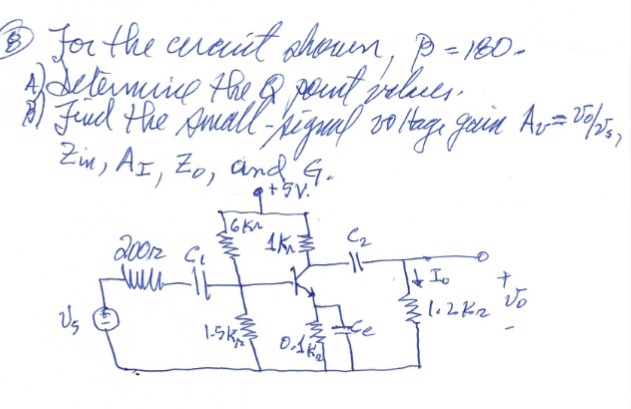 8) For the circuit shown, β = 180.
A) Determine the Q point values.
B) Find the small-signal voltage gain Av = vo/vs,
Zin, AI, Zo, and G.
+9V.
6KΩ
1KΩ
C2
200Ω C1
Io
+
vo
-
1.2KΩ
vs
1.5KΩ
0.1KΩ
Ce